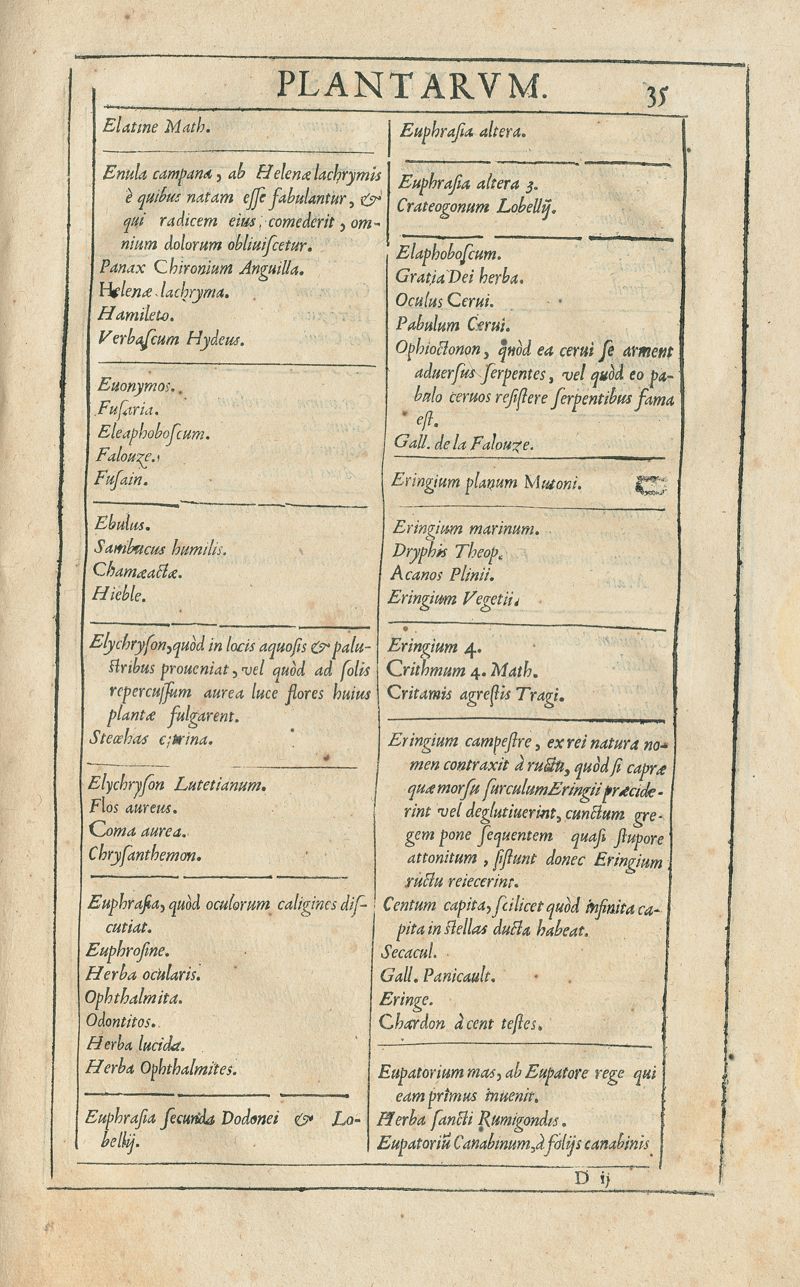 PLANTARVM.
35
Elatine Math.
Enula campana, ab Helenæ lachrymis
è quibus natam eſſe fabulantur, &
qui radicem eius, comederit, om-
nium dolorum obliuiſcetur.
Panax Chironium Anguilla.
Helenæ lachryma.
Hamileto.
Verbaſcum Hydeus.
Euonymos.
Fuſaria.
Eleaphoboſcum.
Falouze.
Fuſain.
Ebulus.
Sambucus humilis.
Chamæactæ.
Hieble.
Elychryſon, quòd in locis aquoſis & palu-
ſtribus proueniat, vel quòd ad ſolis
repercuſſum aurea luce flores huius
plantæ fulgarent.
Stœchas citrina.
Elychryſon Lutetianum.
Flos aureus.
Coma aurea.
Chryſanthemon.
Euphraſia, quòd oculorum caligines diſ-
cutiat.
Euphroſine.
Herba ocularis.
Ophthalmita.
Odontitos.
Herba lucida.
Herba Ophthalmites.
Euphraſia ſecunda Dodonei & Lo-
bellij.
Euphraſia altera.
Euphraſia altera 3.
Crateogonum Lobellij.
Elaphoboſcum.
Gratia Dei herba.
Oculus Cerui.
Pabulum Cerui.
Ophioctonon, quòd ea cerui ſe arment
aduerſus ſerpentes, vel quòd eo pa-
bulo ceruos reſiſtere ſerpentibus fama
eſt.
Gall. de la Falouze.
Eringium planum Mutoni.
Eringium marinum.
Dryphis Theop.
Acanos Plinii.
Eringium Vegetii.
Eringium 4.
Crithmum 4. Math.
Critamis agreſtis Tragi.
Eringium campeſtre, ex rei natura no-
men contraxit à ructu, quòd ſi capræ
quæ morſu ſurculum Eringii præcide-
rint vel deglutiuerint, cunctum gre-
gem pone ſequentem quaſi ſtupore
attonitum, ſiſtunt donec Eringium
ructu reiecerint.
Centum capita, ſcilicet quòd infinita ca-
pita in ſtellas ducta habeat.
Secacul.
Gall. Panicault.
Eringe.
Chardon à cent teſtes.
Eupatorium mas, ab Eupatore rege qui
eam primus inuenit.
Herba ſancti Rumigondis.
Eupatoriū Canabinum, à folijs canabinis
D ij